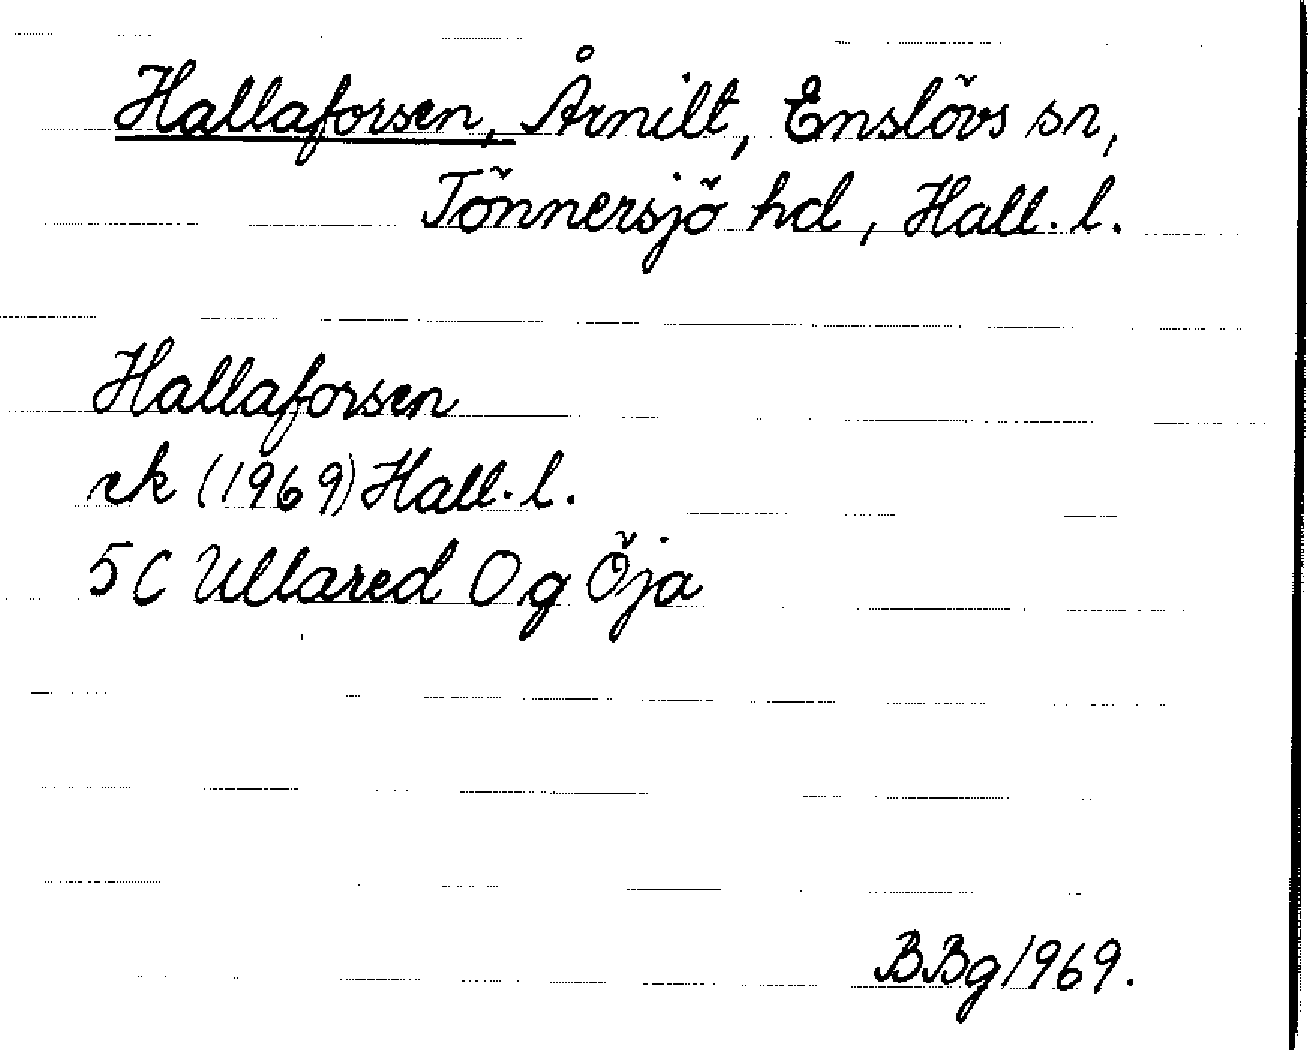 Hallaforsen, Årnilt, Enslövs sn,
Tönnersjö hd, Hall. l.
Hallaforsen
ek (1969) Hall. l.
5C Ullared Og Öja
BBg 1969.